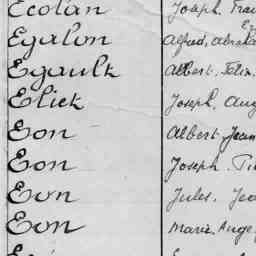 Ecolan Joseph, Fran
Egalon Alfred, Abraha
Egault Albert, Felix.
Eliek Joseph, Aug
Eon Albert Jean
Eon Joseph.
Eon Jules, Jea
Eon Marie Ange